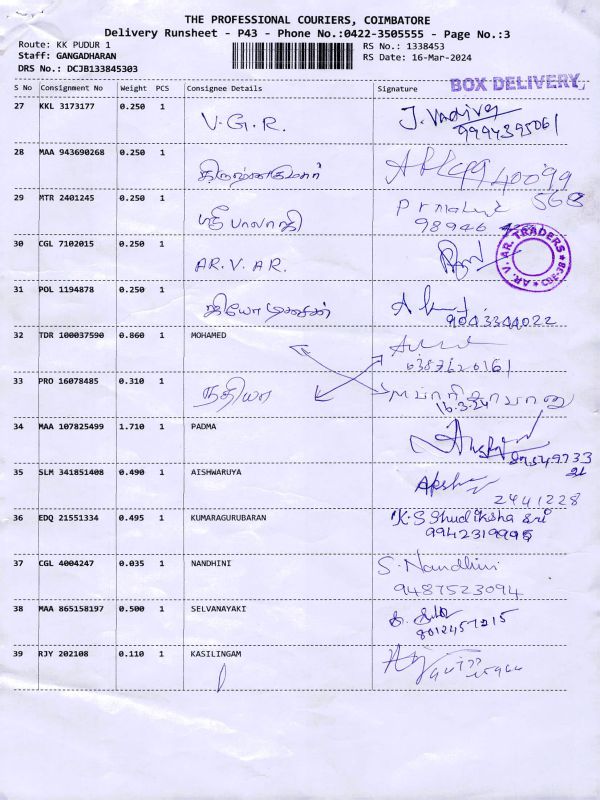 THE PROFESSIONAL COURIERS, COIMBATORE
Delivery Runsheet - P43 - Phone No.:0422-3505555 - Page No.:3
Route: KK PUDUR 1 RS No.: 1338453
Staff: GANGADHARAN RS Date: 16-Mar-2024
DRS No.: DCJB133845303
BOX DELIVERY
S No Consignment No Weight PCS Consignee Details Signature
27 KKL 3173177 0.250 1 V.G.R. J. Vadivel
9994395061
28 MAA 943690268 0.250 1
29 MTR 2401245 0.250 1 ஸ்ரீ பாலாஜி
98946
568
30 CGL 7102015 0.250 1 AR.V.AR.
AR. V. AR. TRADERS
31 POL 1194878 0.250 1
9043344022
32 TDR 100037590 0.860 1 MOHAMED
33 PRO 16078485 0.310 1 நதியா
16.3.24
34 MAA 107825499 1.710 1 PADMA
35 SLM 341851408 0.490 1 AISHWARUYA
2441228
36 EDQ 21551334 0.495 1 KUMARAGURUBARAN K.S Shudiksha Sri
9942319995
37 CGL 4004247 0.035 1 NANDHINI S. Nandhini
9487523094
38 MAA 865158197 0.500 1 SELVANAYAKI
8012457215
39 RJY 202108 0.110 1 KASILINGAM